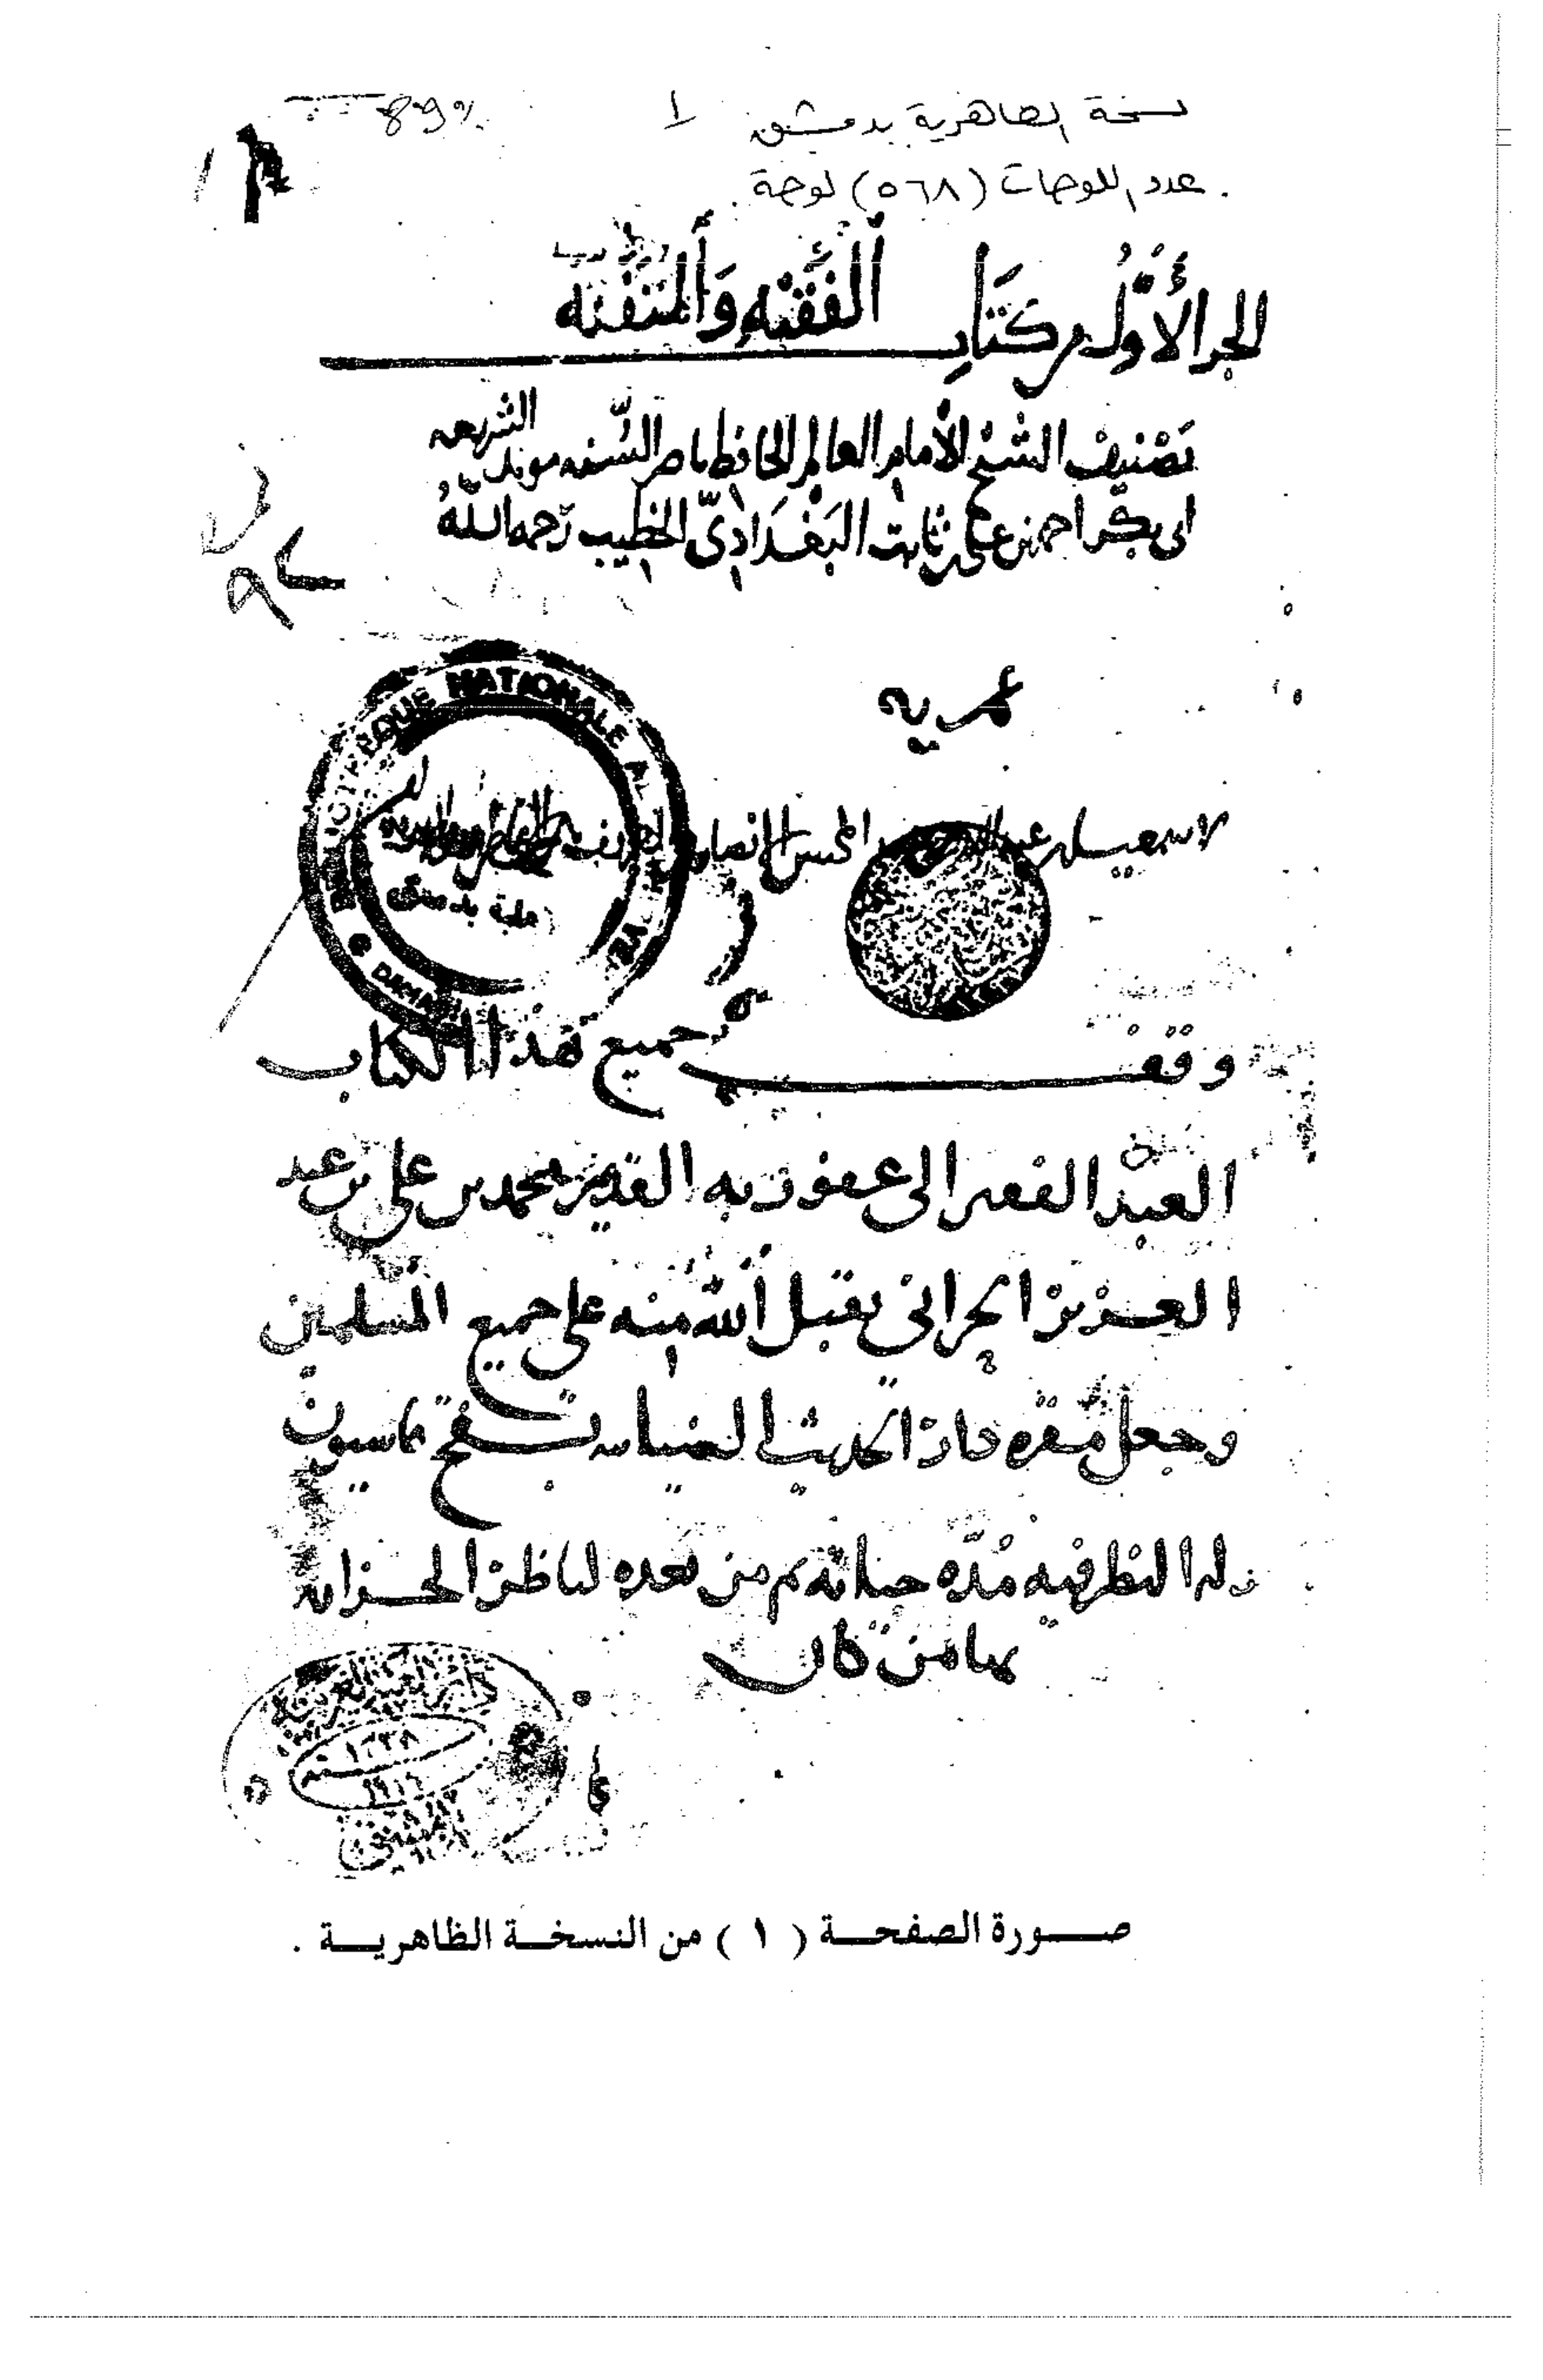 نسخة الظاهرية بدمشق ١
عدد اللوحات (٥٦٨) لوحة.
الجزء الأول من كتاب الفقيه والمتفقه
تصنيف الشيخ الأمام العالم الحافظ ناصر السنه مويد الشريعه
ابى بكر احمد بن على بن ثابت البغدادي الخطيب رحمه الله
عمريه
لاسمعيل بن المحسن الانصارى
BIBLIOTHEQUE NATIONALE AL DAMAS
وقف جميع هذا الكتاب
العبد الفقير الى عفو ربه القدير محمد بن على بن عبد
العزيز الحراني تقبل الله منه على جميع المسلمين
وجعل مقره دار الحديث الضيائيه بسفح قاسيون
وله النظر فيه مدة حياته ثم من بعده لناظر الخزانة
بها من كان
١٣٣٨
١٩١٩
صورة الصفحة ( ١ ) من النسخة الظاهرية .